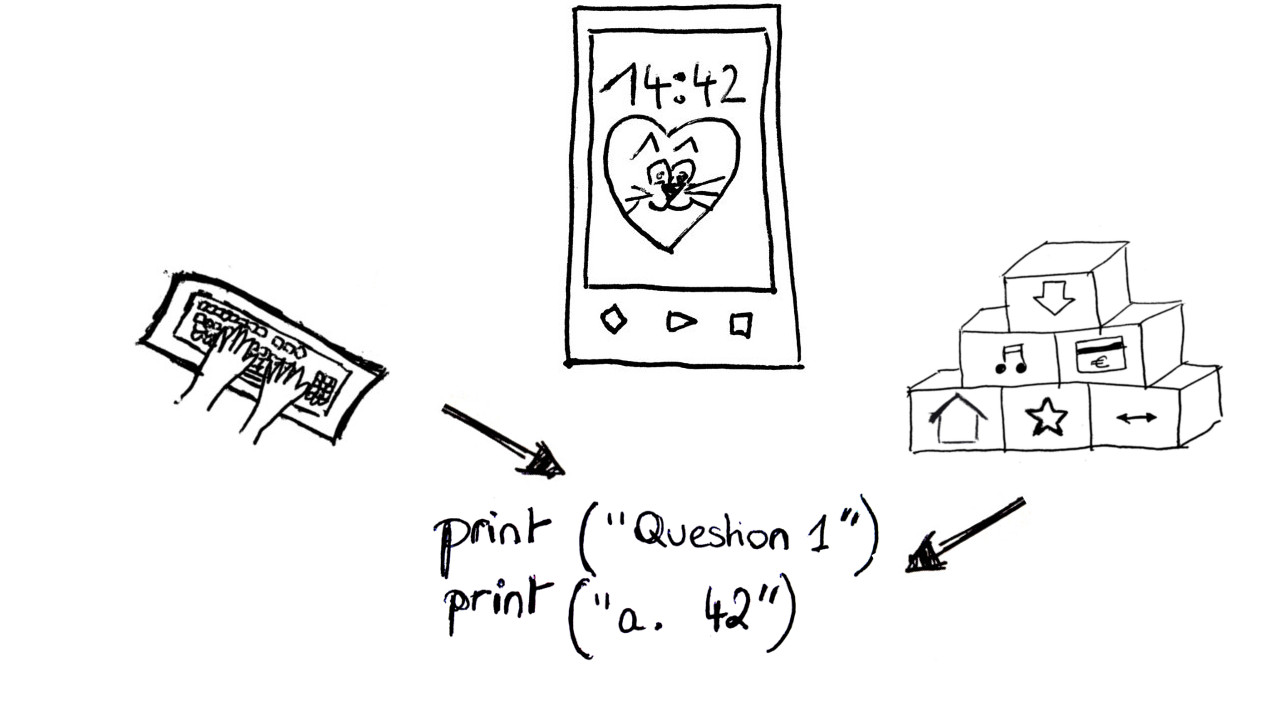 14:42
€
print ("Question 1")
print ("a. 42")